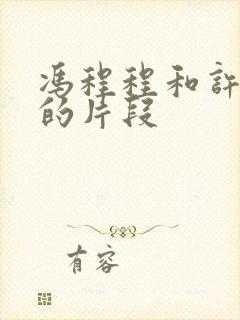 馮程程和許
的片段
有容